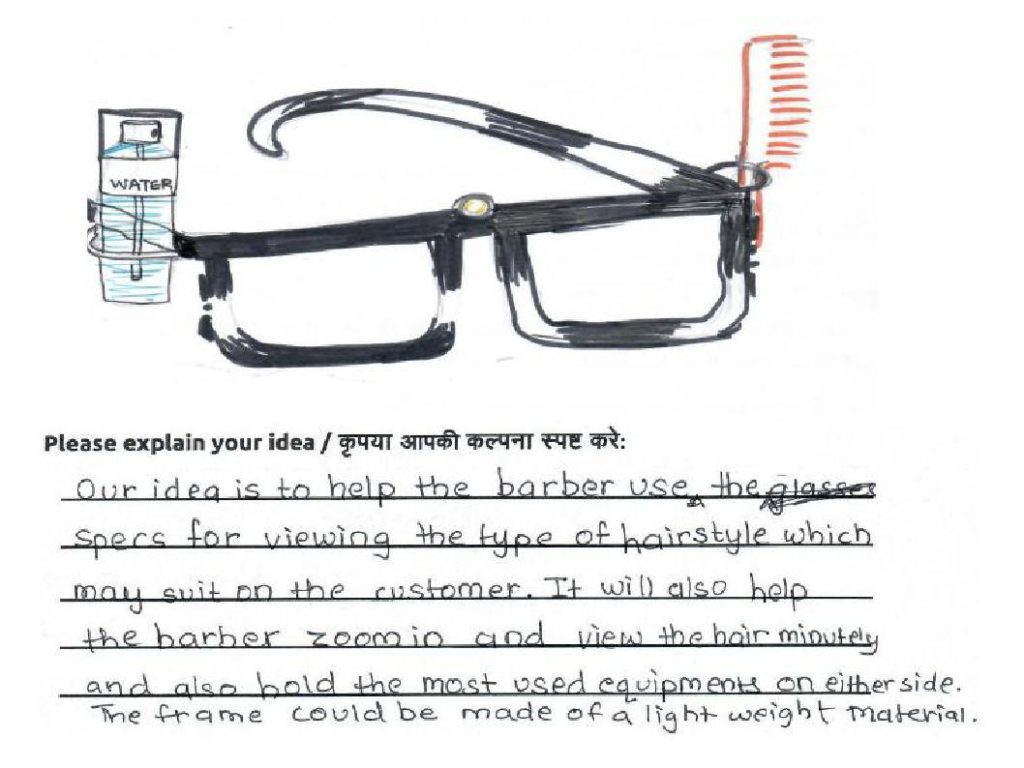 WATER
Please explain your idea / कृपया आपकी कल्पना स्पष्ट करे:
Our idea is to help the barber use the glasses
specs for viewing the type of hairstyle which
may suit on the customer. It will also help
the barber zoom in and view the hair minutely
and also hold the most used equipments on either side.
The frame could be made of a light weight material.